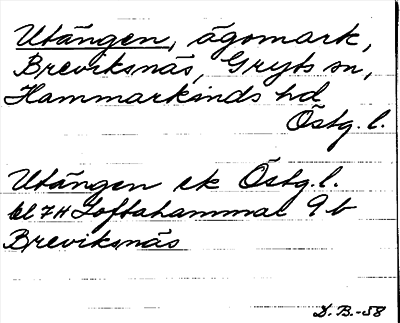 Utängen, ägomark,
Breviksnäs, Gryts sn,
Hammarkinds hd
Östg. l.
Utängen ek Östg. l.
bl 7H Loftahammar 9b
Breviksnäs
D. B. -58